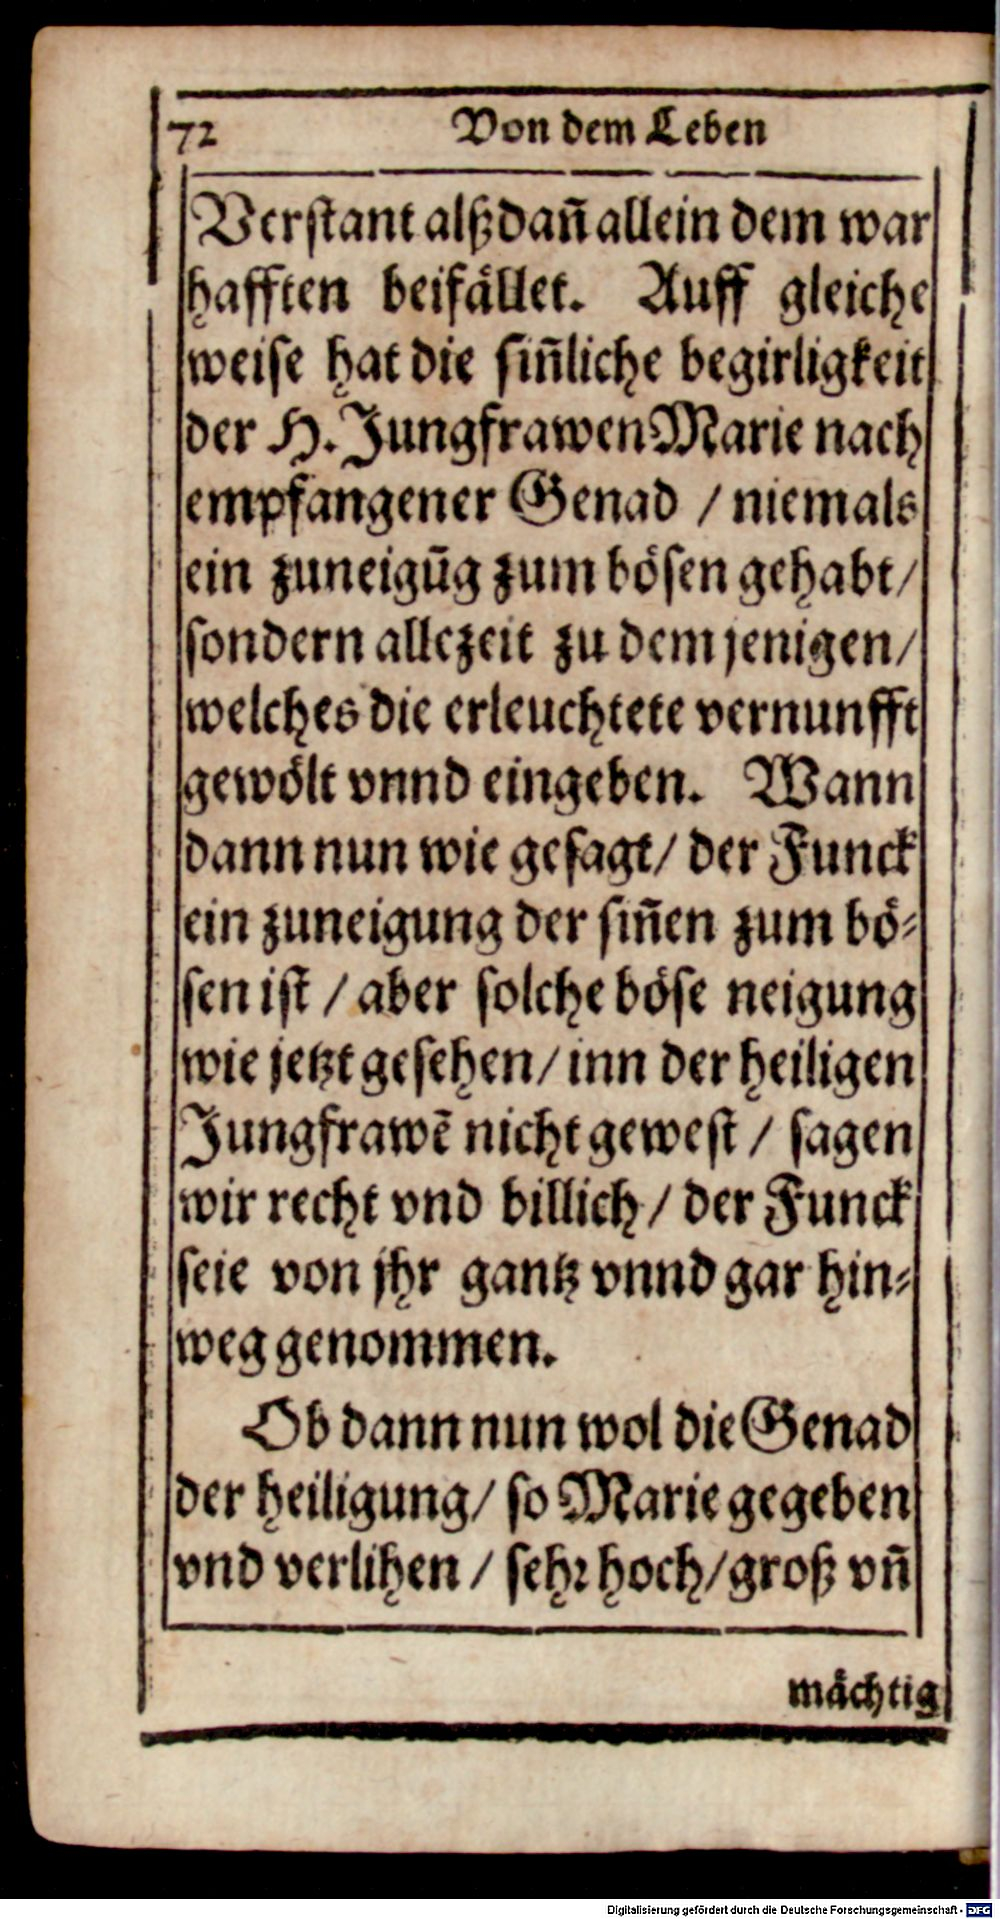 72 Von dem Leben
Verstant alßdañ allein dem war
hafften beifället. Auff gleiche
weise hat die siñliche begirligkeit
der H. Jungfrawen Marie nach
empfangener Genad / niemals
ein zuneigūg zum bösen gehabt /
sondern allezeit zu dem jenigen /
welches die erleuchtete vernunfft
gewölt vnnd eingeben. Wann
dann nun wie gesagt / der Funck
ein zuneigung der siñen zum bö-
sen ist / aber solche böse neigung
wie jetzt gesehen / inn der heiligen
Jungfrawē nicht gewest / sagen
wir recht vnd billich / der Funck
seie von jhr gantz vnnd gar hin-
weg genommen.
Ob dann nun wol die Genad
der heiligung / so Marie gegeben
vnd verlihen / sehr hoch / groß vñ
mächtig
Digitalisierung gefördert durch die Deutsche Forschungsgemeinschaft - DFG